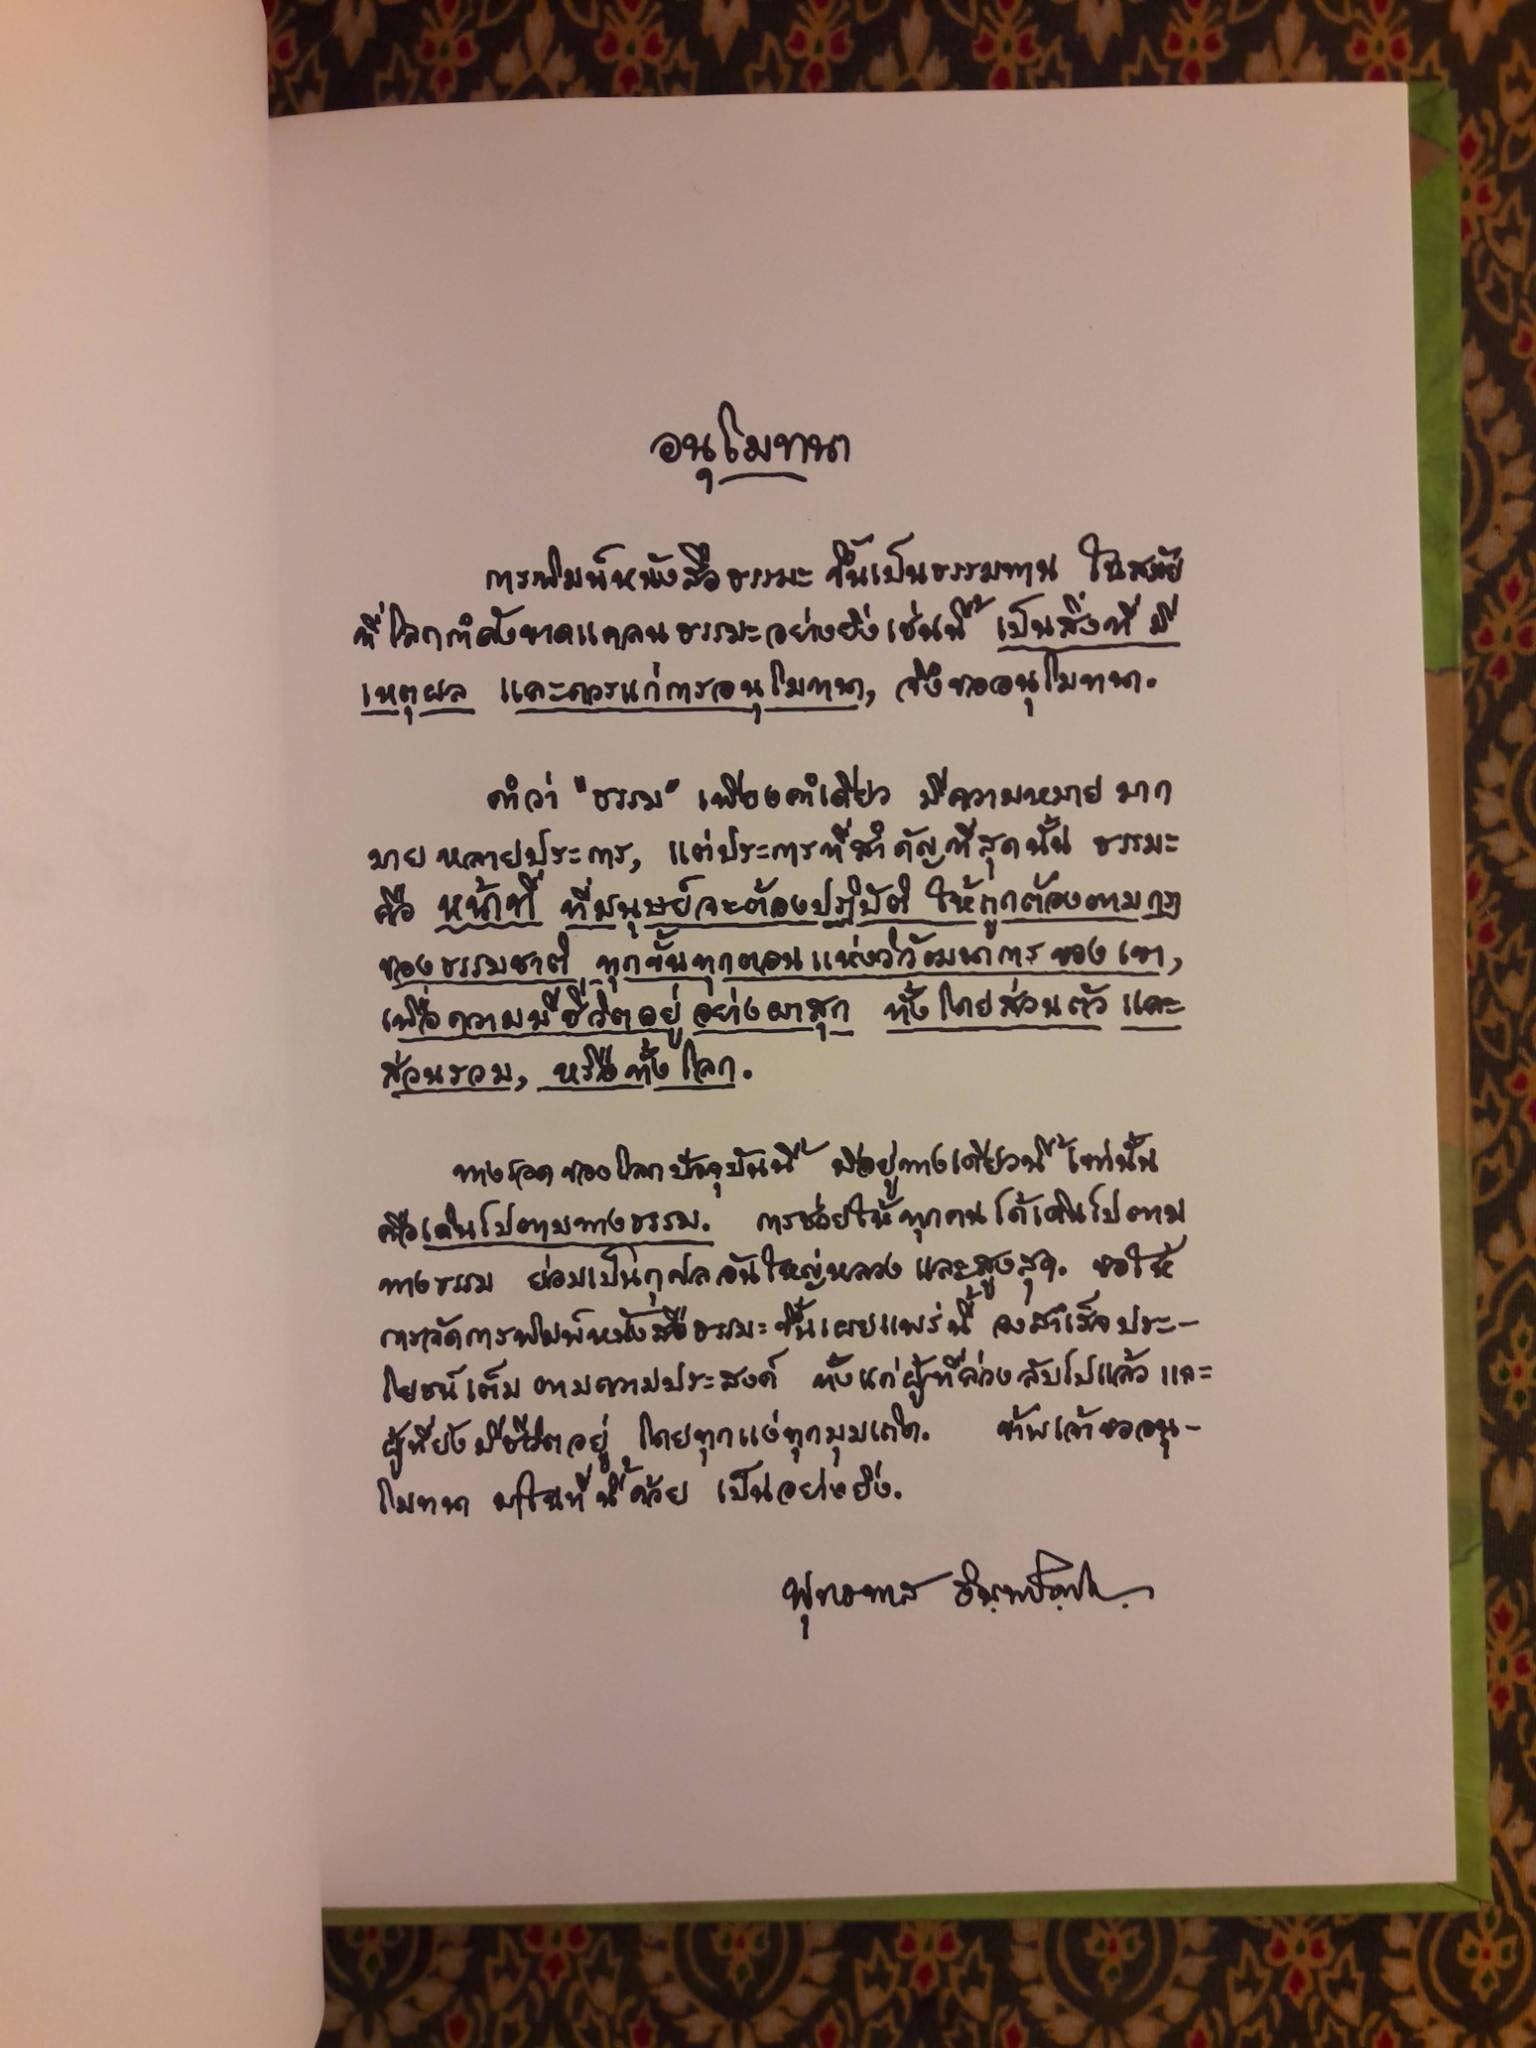 อนุโมทนา
การพิมพ์หนังสือธรรมะ ขึ้นเป็นธรรมทาน ในสมัย
ที่โลกกำลังขาดแคลนธรรมะอย่างยิ่งเช่นนี้ เป็นสิ่งที่ มี
เหตุผล และควรแก่การอนุโมทนา, จึงขออนุโมทนา.
คำว่า "ธรรม" เพียงคำเดียว มีความหมาย มาก
มาย หลายประการ, แต่ประการที่สำคัญที่สุดนั้น ธรรมะ
คือ หน้าที่ ที่มนุษย์จะต้องปฏิบัติ ให้ถูกต้องตามกฎ
ของธรรมชาติ ทุกขั้นทุกตอนแห่งวิวัฒนาการ ของ เขา,
เพื่อความมีชีวิตอยู่ อย่างผาสุก ทั้งโดยส่วนตัว และ
ส่วนรวม, หรือทั้งโลก.
ทางรอด ของโลกปัจจุบันนี้ มีอยู่ทางเดียวนี้ เท่านั้น
คือเดินไปตามทางธรรม. การช่วยให้ทุกคนได้เดินไปตาม
ทางธรรม ย่อมเป็นกุศลอันใหญ่หลวง และสูงสุด. ขอให้
การจัดการพิมพ์หนังสือธรรมะ ขึ้นเผยแพร่นี้ จงสำเร็จประ-
โยชน์ เต็ม ตามความประสงค์ ทั้งแก่ผู้ที่ล่วงลับไปแล้ว และ
ผู้ที่ยังมีชีวิตอยู่ โดยทุกแง่ทุกมุมเถิด. ข้าพเจ้าขออนุ-
โมทนา มาในที่นี้ด้วย เป็นอย่างยิ่ง.
พุทธทาส อินฺทปญฺโญ